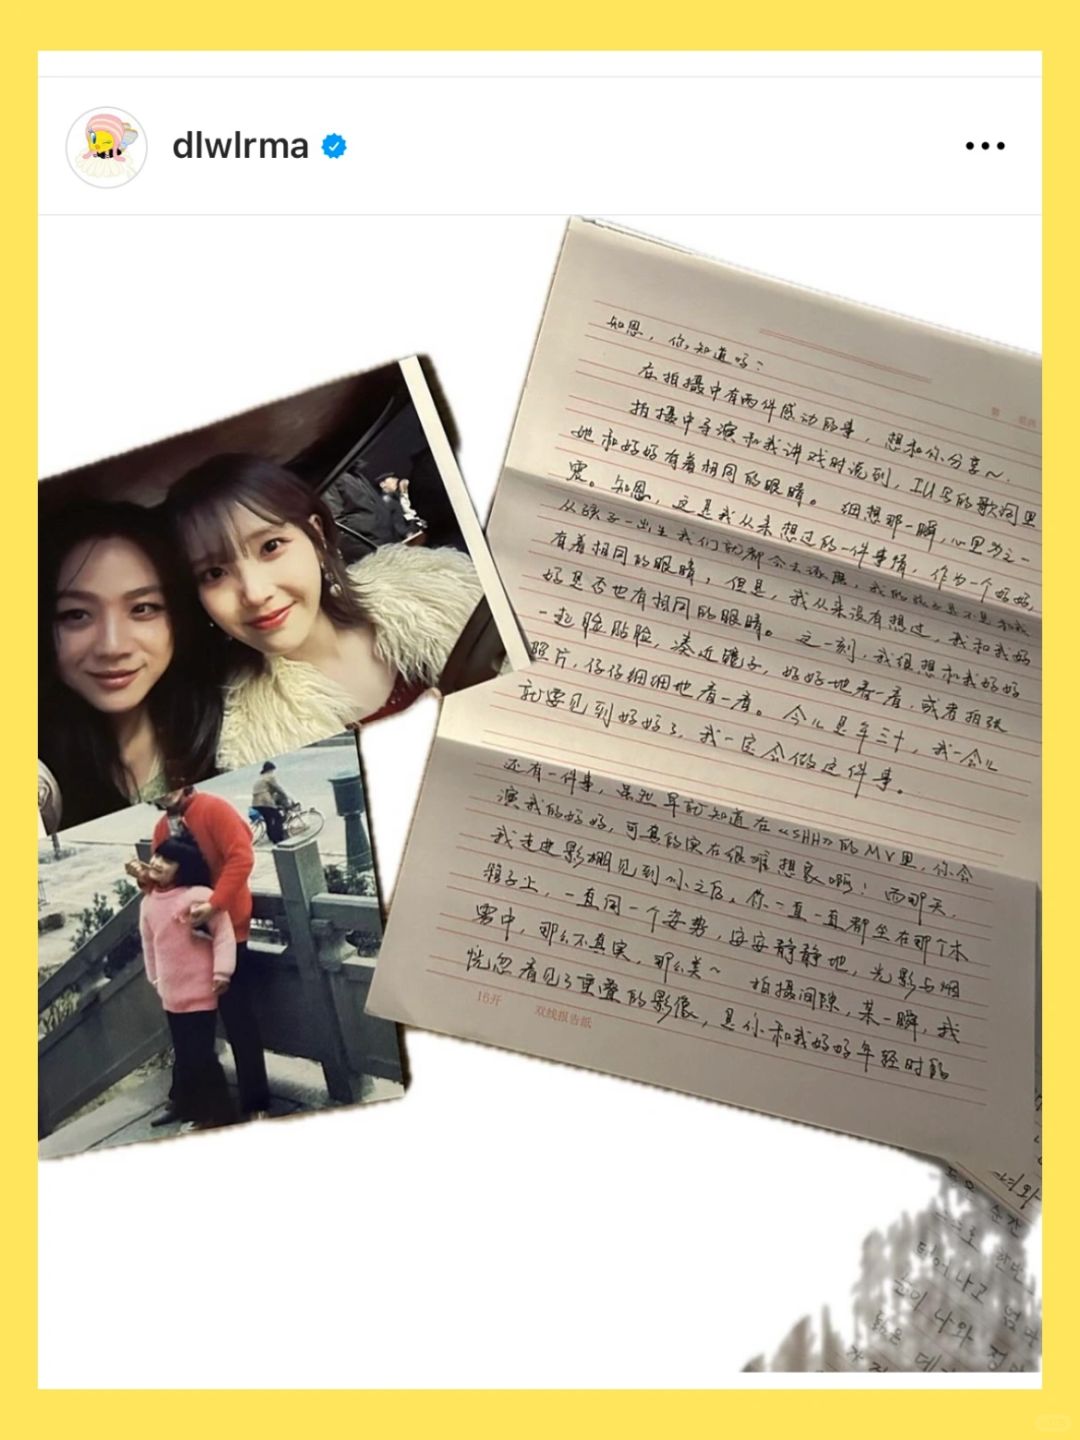 dlwlrma
知恩，你知道吗？
在拍摄中有两件感动的事，想和你分享～
拍摄中导演和我讲戏时说到，IU写的歌词里
她和妈妈有着相同的眼睛。细想那一瞬，心里为之一
震。知恩，这是我从来想过的一件事情，作为一个妈妈，
从孩子一出生我们就都会去
有着相同的眼睛，但是，我从来没有想过，我和我妈
妈是否也有相同的眼睛。这一刻，我很想和我妈妈
一起脸贴脸，凑近镜子，好好地看一看，或者拍张
照片，仔仔细细地看一看。今儿是年三十，我一会儿
就要见到妈妈了，我一定会做这件事。
还有一件事，虽然早就知道在《SHH》的MV里，你会
演我的妈妈，可真的实在很难想象啊！而那天，
我走进影棚见到你之后，你一直一直都坐在那个木
椅子上，一直同一个姿势，安安静静地，光影与烟
雾中，那么不真实，那么美～ 拍摄间隙，某一瞬，我
恍忽看见了重叠的影像，是你和我妈妈年轻时的
16开 双线报告纸
순간
한번
태어나고
눈이 나와
닮은